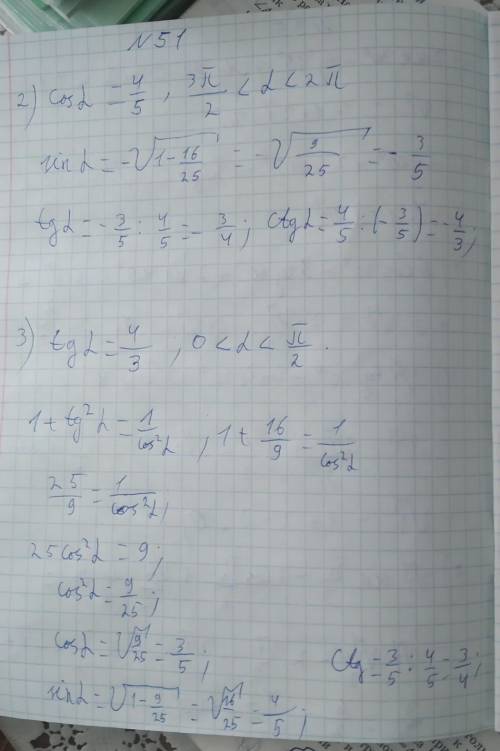 №51
2) cosα = 4/5, 3π/2 < α < 2π
sinα = -√(1 - 16/25) = -√(9/25) = - 3/5
tgα = - 3/5 : 4/5 = - 3/4; ctgα = 4/5 : (- 3/5) = - 4/3;
3) tgα = 4/3, 0 < α < π/2.
1 + tg²α = 1/cos²α, 1 + 16/9 = 1/cos²α
25/9 = 1/cos²α,
25cos²α = 9;
cos²α = 9/25;
cosα = √(9/25) = 3/5;
ctg = 3/5 : 4/5 = 3/4;
sinα = √(1 - 9/25) = √(16/25) = 4/5;